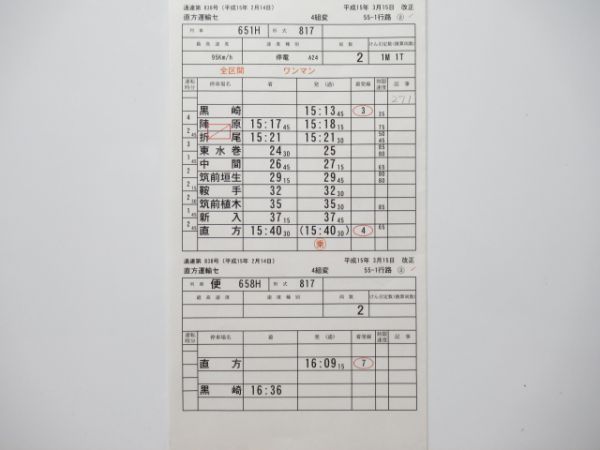 運運第 038号 (平成15年 2月14日) 平成15年 3月15日 改正
直方運輸セ 4組変 55-1行路
列車 651H 形式 817
最高速度 速度種別 両数 けん引定数(換算両数)
95Km/h 停電 A24 2 1M 1T
全区間 ワンマン
運転時分 停車場名 着 発 (通) 着発線 制限速度 記事
271
黒崎 15:13 45 3 35
4
陣原 15:17 45 15:18 15 75
2 45
折尾 15:21 15:21 30
3
東水巻 24 30 25
1 45
中間 26 45 27 15
2
筑前垣生 29 15 29 45
2
鞍手 32 32 30
2
筑前植木 35 35 30 85
1 45
新入 37 15 37 45
2 45
直方 15:40 30 (15:40 30) 4 65
乗
038号 (平成15年 2月14日) 平成15年 3月15日 改正
直方運輸セ 4組変 55-1行路
列車 便 658H 形式 817
最高速度 速度種別 両数 けん引定数(換算両数)
2
運転時分 停車場名 着 発 (通) 着発線 制限速度 記事
直方 16:09 15 7
黒崎 16:36